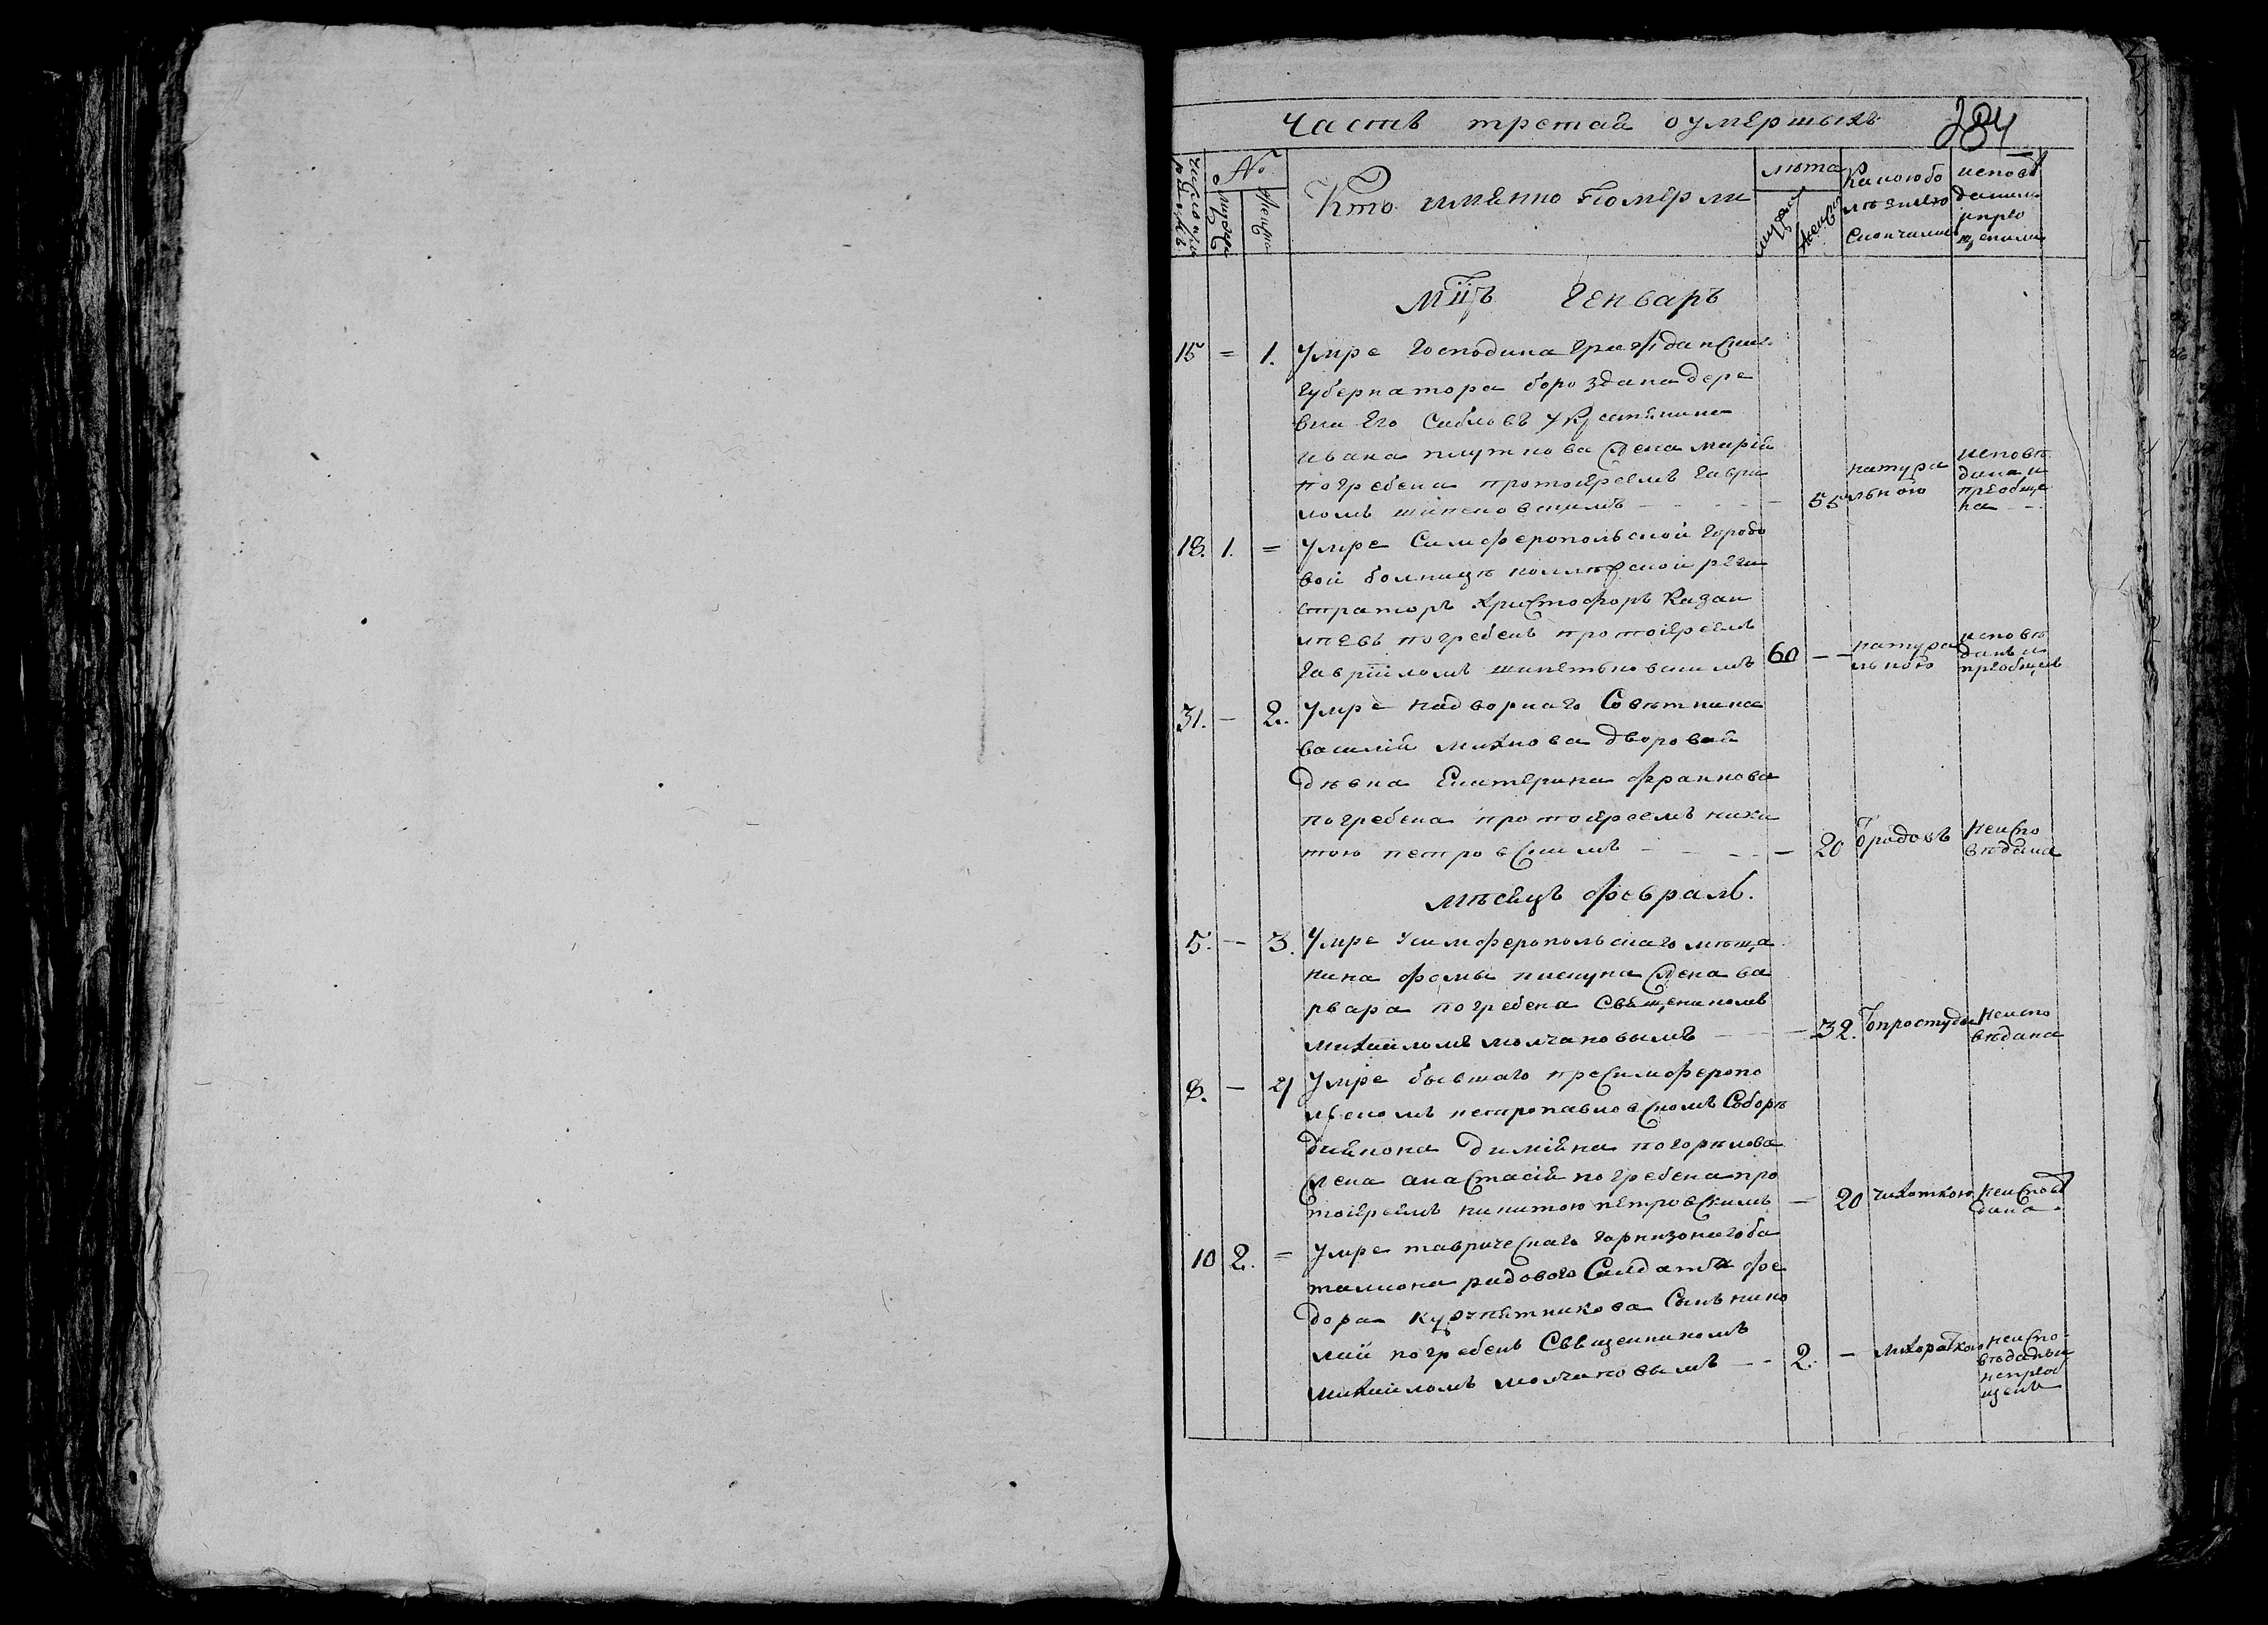 Часть третая о умершыхъ
284
№
Кто именно померли
лѣта
Какою бо
лѣзнею
скончались
мужеска
женска
Мцъ Генварь
15 = 1. Умре Господина гражданскаго
губернатора бороздана дере
вни его Сабловъ у крестянина
ивана плутнова жена марія
погребена протоіереемъ гаври
ломъ шипеновскимъ - - - 55 натура
льною
исповѣ
дана и
преобще
на
18. 1. = Умре Симферопольской городо
вой болницѣ колежской реги
страторъ христофоръ Казан
цевъ погребенъ протоіереемъ
гавріиломъ 60 - - натура
льною
исповѣ
данъ и
преобщенъ
31. - 2. Умре надворнаго Совѣтника
василія михнова дворовая
дѣвка Екатерина франкова
погребена протоіереемъ ники
тою петровскимъ - - - 20
неиспо
вѣдана
мѣсяцъ февраль.
5. - 3. Умре усимферопольскаго мѣща
нина фомы пискуна жена ва
рвара погребена Священикомъ
михаиломъ молчановымъ - 32. от простуды
неиспо
вѣдана
8. - 4 Умре бывшаго присимферопо
льскомъ петропавловскомъ Соборѣ
діякона даміяна погорѣлова
жена анастасія погребена про
тоіереемъ никитою петровскимъ - 20 чихоткою
неисповѣ
дана.
10 2. = Умре таврическаго гарнизонаго ба
талиона рядового Салдата фе
дора Сынъ нико
лай погребенъ Священикомъ
михаиломъ молчановымъ - - 2. - лихораткою
неиспо
вѣданъ и
неприоб
щенъ